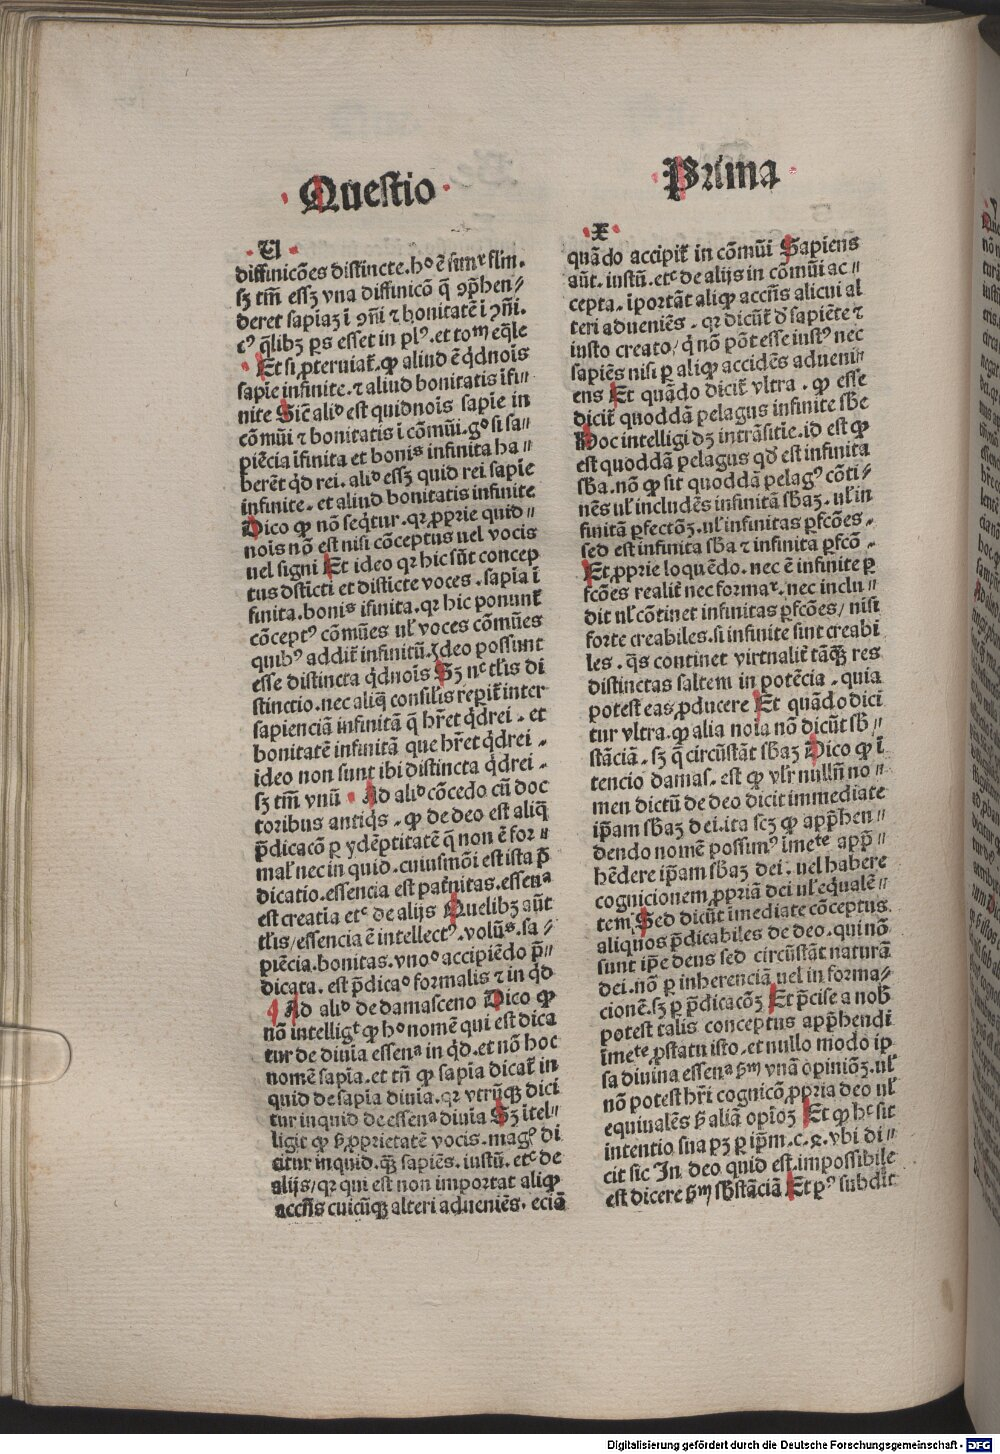 Questio
Prima
U
diffinicōes distincte. hꝰ ē simꝛ flm.
sꝫ tm̄ essꝫ vna diffinicō q̄ ꝯp̄hen⸗
deret sapiaꝫ ī ꝯn̄i ⁊ bonitatē ī ꝯn̄i.
cꝰ q̄libꝫ ps esset in plꝰ. et tom̄ eq̄le
Et si ꝓteruiat̄. ꝙ aliud ē qͥdnoīs
sapīe infinite. ⁊ aliud bonitatis īfi⸗
nite Sicē aliᵒ est quidnoīs sapīe in
cōmūi ⁊ bonitatis ī cōmūi. gᵒ si sa⸗
piēcia īfinita et boniˢ infinita ha⸗
berēt qͥd rei. aliᵒ essꝫ quid rei sapīe
infinite. et aliud bonitatis infinite
Dico ꝙ nō seqͥtur. qꝛ ꝓprie quid⸗
noīs nō est nisi cōceptus uel vocis
uel signi Et ideo qꝛ hic sūt concep
tus dsticti et disticte voces. sapīa ī
finita. boniˢ ifinita. qꝛ hic ponunt̄
cōceptꝰ cōmūes ul̓ voces cōmūes
quibꝰ addit̄ infinitū. ideo possunt
esse distincta qͥdnoīs Sꝫ nᶜ tl̓is di
stinctio. nec aliq̄ consil̓is reꝑit̄ inter
sapienciā infinitā q̄ hr̄et qͥdrei. et
bonitatē infinitā que hr̄et qͥdrei.
ideo non sunt ibi distincta qͥdrei.
sꝫ tm̄ vnū Ad aliᵒ cōcedo cū doc
toribus antiqͥs. ꝙ de deo est aliq̄
p̄dicacō ꝑ ydēptitatē q̄ non ē for⸗
mal̓ nec in quid. cuiusmōi est ista p̄
dicatio. essencia est pat̄nitas. essenᵃ
est creatīa etᶜ de alijs Quelibꝫ aūt
tl̓is/ essencia ē intellectꝰ. volūˢ. sa⸗
piēcia. bonitas. vnoᵒ accipiēdo p̄⸗
dicata. est p̄dicaᵒ formalis ⁊ in qͥd
Ad aliᵒ de damasceno Dico ꝙ
nō intelligᵗ ꝙ hᵒ nomē qui est dica
tur de diuīa essenᵃ in qͥd. et nō hoc
nomē sapīa. et tn̄ ꝙ sapīa dicat̄ in
quid de sapīa diuīa. qꝛ vtrūqꝫ dici
tur inquid de essenᵃ diuīa Sꝫ ītel⸗
ligit ꝙ ẜm ꝓprietatē vocis. magꝰ di
citur inquid. qꝫ sapiēs. iustū. etᶜ de
alijs/ qꝛ qui est non importat aliqͦ
accn̄s cuicūqꝫ alteri adueniēs. eciā
X
quādo accipit̄ in cōmūi Sapiens
aūt. iustū. etᶜ de alijs in cōmūi ac⸗
cepta. īportāt aliqͦ accn̄s alicui al
teri adueniēs. qꝛ dicūt̄ d̓ sapiēte ⁊
iusto creato/ q̓ nō pōt esse iustꝰ nec
sapiēs nisi ꝑ aliqͦ accidēs adueni⸗
ens Et quādo dicit̄ vltra. ꝙ esse
dicit̄ quoddā pelagus infinite sb̄e
Hoc intelligi dꝫ intrāsitīe. id est ꝙ
est quoddā pelagus qd̓ est infinita
sb̄a. nō ꝙ sit quoddā pelagꝰ cōti⸗
nēs ul̓ includēs infinitā sb̄aꝫ. ul̓ in
finitā perfectōꝫ. ul̓ infinitas ꝑfcōes.
sed est infinita sb̄a ⁊ infinita ꝑfcō.
Et ꝓprie loquēdo. nec ē infinite ꝑ
fcōes realit̄ nec formaꝛ. nec inclu⸗
dit ul̓ cōtinet infinitas ꝑfcōes/ nisi
forte creabiles. si infinite sint creabi
les. qͣs continet virtualit̄ tāqꝫ res
distinctas saltem in potēcia. quia
potest eas ꝓducere Et quādo dici
tur vltra. ꝙ alia noīa nō dicūt sb̄⸗
stāciā. sꝫ q̄ circūstāt sb̄aꝫ Dico ꝙ ī
tencio damas. est ꝙ vl̓r nullū no⸗
men dictū de deo dicit immediate
ip̄am sb̄aꝫ dei. ita scꝫ ꝙ app̄hen⸗
dendo nomē possumꝰ īmeᵗᵉ app̄⸗
hēdere ip̄am sb̄aꝫ dei. uel habere
cognicionem ꝓpriā dei ul̓ equalē⸗
tem Sed dicūt īmediate cōceptus
aliquos p̄dicabiles de deo. qui nō
sunt ip̄e deus sed circūstāt naturā
dei. nō ꝑ inherenciā uel in forma⸗
cionē. sꝫ ꝑ p̄dicacōꝫ Et p̄cise a nob̄
potest talis conceptus app̄hendi
īmeᵗᵉ ꝓ statu isto. et nullo modo ip̄
sa diuina essenᵃ ẜm vnā opinioꝫ. ul̓
nō potest hr̄i cognicō ꝓpria deo ul̓
equiualēs ẜm aliā opioꝫ Et ꝙ hᶜ sit
intentio sua pꝫ ꝑ ip̄m. c. ꝝ. vbi di⸗
cit sic In deo quid est. impossibile
est dicere ẜm sb̄stāciā Et pꝰ subdit
Digitalisierung gefördert durch die Deutsche Forschungsgemeinschaft - DFG